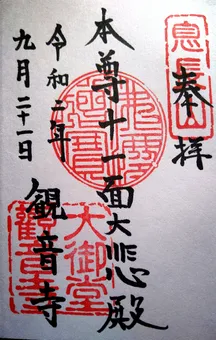 奉拝
息長山
本尊十一面大悲殿
大御堂
観音寺
観音寺
令和二年
九月二十一日